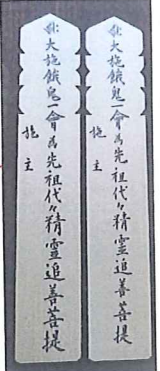 大施餓鬼一會為先祖代々精霊追善菩提
施主
大施餓鬼一會為先祖代々精霊追善菩提
施主